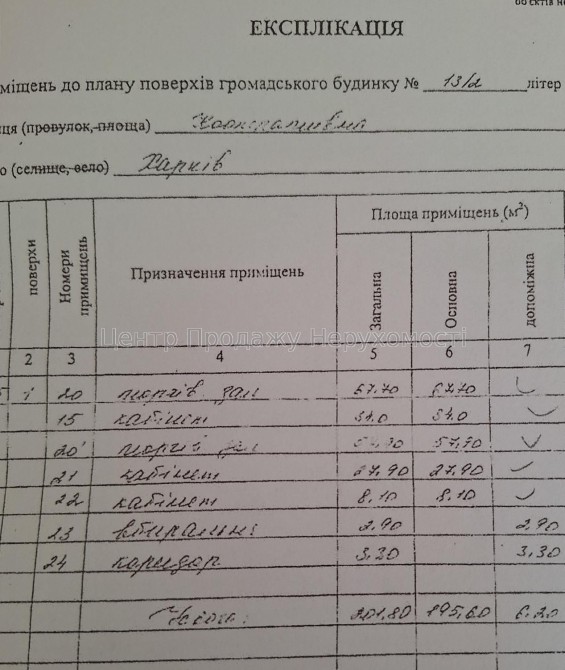 ЕКСПЛІКАЦІЯ
міщень до плану поверхів громадського будинку № 13/2 літер
ця (провулок, площа) Кооперативна
о (селище, село) Харків
поверхи Номери приміщень Призначення приміщень Площа приміщень (м²)
Загальна Основна допоміжна
2 3 4 5 6 7
1 20 торгів. зал 67.70 67.70
15 кабінет 34.0 34.0
20' торгів зал 57.90
21 кабінет 27.90 27.90
22 кабінет 8.10 8.10
23 вбиральні 2.90 2.90
24 коридор 3.30 3.30
Усього: 201.80 195.60 6.20
Центр Продажу Нерухомості